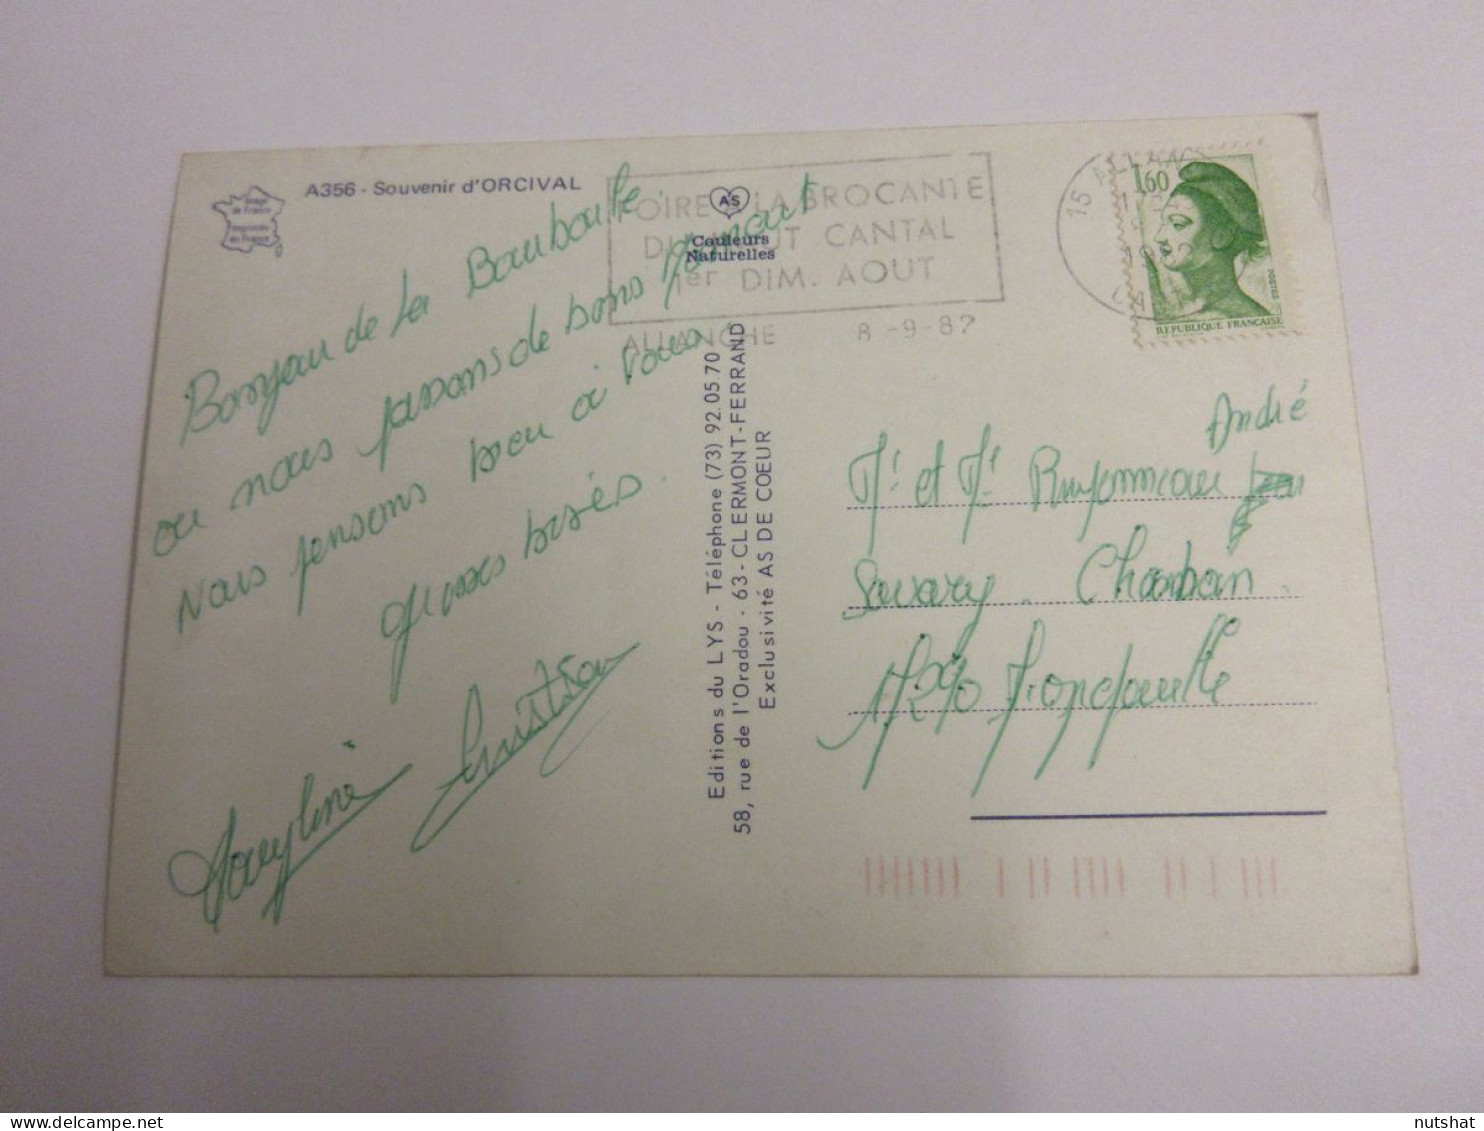 Image
de France
Imprimée
en France
A356 - Souvenir d'ORCIVAL
AS
Couleurs
Naturelles
FOIRE A LA BROCANTE
DU HAUT CANTAL
1er DIM. AOUT
ALLANCHE 8-9-82
15 ALLANCHE
1982
1.60
POSTES
REPUBLIQUE FRANÇAISE
Bonjour de La Bourboule
ou nous passons de bons moments
Nous pensons bien à vous
grosses bises.
Christian
Editions du LYS - Téléphone (73) 92.05.70
58, rue de l'Oradou - 63-CLERMONT-FERRAND
Exclusivité AS DE COEUR
André
Mr et Me
Chambon
17290
nutshat